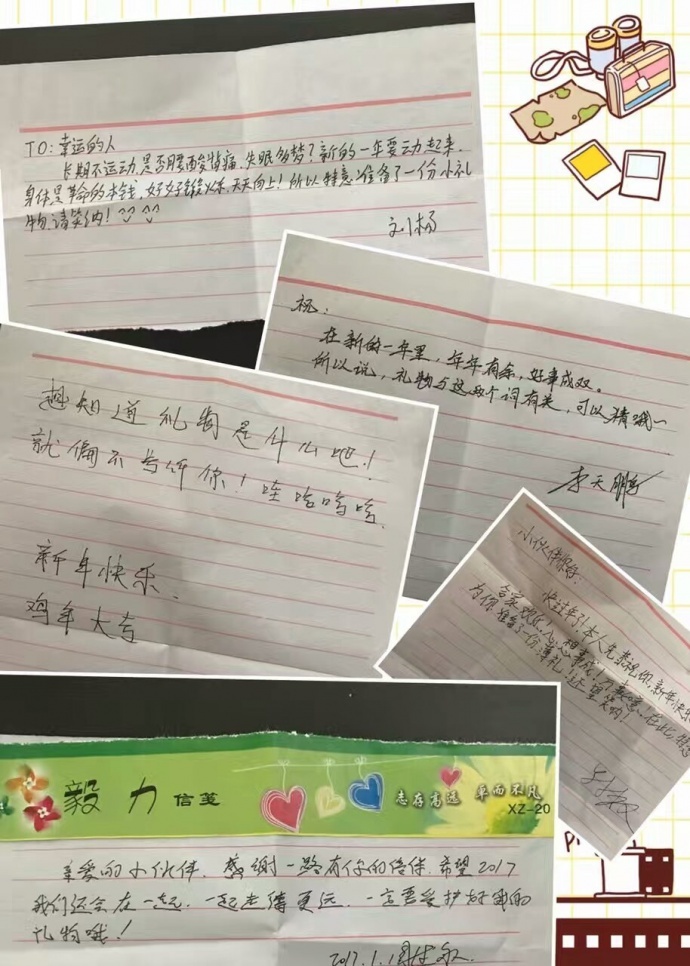 TO：幸运的人
长期不运动,是否腰酸背痛,失眠多梦？新的一年要动起来.
身体是革命的本钱，好好锻炼,天天向上！所以特意准备了一份小礼
物,请笑纳！^_^ ^_^
刘杨
祝：
在新的一年里，年年有余，好事成双。
所以说，礼物与这两个词有关，可以猜哦～
李天鹏
想知道礼物是什么吧！
就偏不告诉你！哇哈哈哈.
新年快乐.
鸡年大吉
小伙伴你好：
快过年了！本人先来祝你,新年快乐
合家欢乐,心想事成！
为你准备了一份薄礼,还望笑纳！
毅力 信笺
志存高远 卓而不凡
XZ-20
亲爱的小伙伴，感谢一路有你的陪伴,希望2017
我们还会在一起,一起走得更远,一定要爱护好我的
礼物哦！
2017.1.1